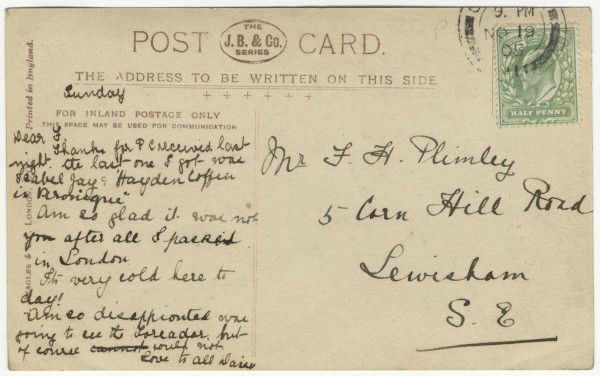 POST CARD.
THE J.B. & Co. SERIES
THE ADDRESS TO BE WRITTEN ON THIS SIDE
FOR INLAND POSTAGE ONLY
THIS SPACE MAY BE USED FOR COMMUNICATION
Printed in England.
LONDON
9. PM
NO 19
HALF PENNY
Sunday
Dear F.
Thanks for P C received last
night. the last one I got was
Isabel Jay & "Hayden Coffin
in Veronique"
Am so glad it was not
you after all I packed
in London
Its very cold here to
day!
Am so disappionted was
going to see the Toreador. but
of course cannot could not
Love to all Daisy
Mr F. H. Plimley
5 Corn Hill Road
Lewisham
S. E